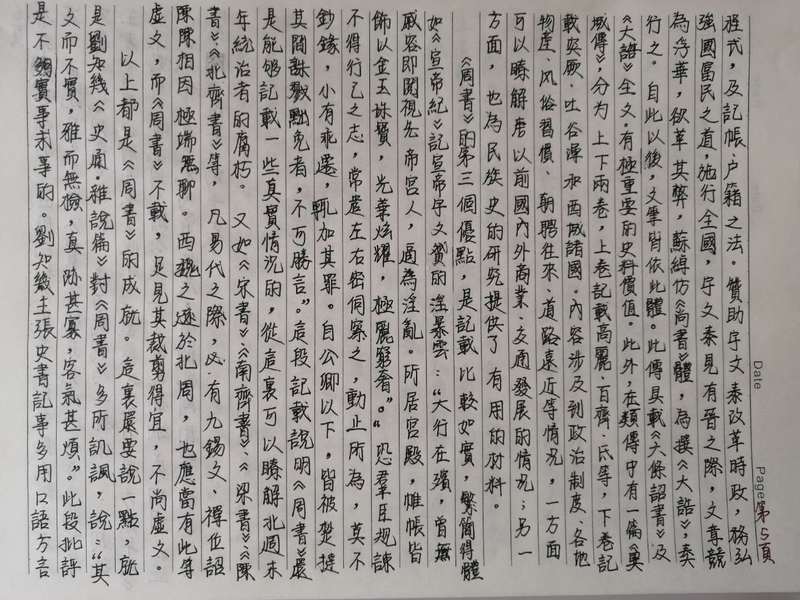 程式，及記帳、户籍之法。贊助宇文泰改革時政，務弘
強國富民之道，施行全國，宇文泰見有晉之際，文章競
為浮華，欲革其弊，蘇綽仿《尚書》體，為撰《大誥》，奏
行之。自此以後，文筆皆依此體。此傳具載《六條詔書》及
《大誥》全文，有極重要的史料價值。此外，在類傳中有一篇《異
域傳》，分为上下兩卷，上卷記載高麗、百齊、氐等，下卷記
載突厥、吐谷渾和西域諸國。內容涉及到政治制度、各地
物產、风俗習慣、朝聘往來、道路遠近等情況，一方面
可以瞭解唐以前國內外商業、交通發展的情況；另一
方面，也為民族史的研究提供了有用的材料。
《周書》的第三個優點，是記載比較如實，繁簡得體
如《宣帝紀》記宣帝宇文贇的淫暴雲：“大行在殯，曾無
戚容即閱視先帝宮人，逼為淫亂。所居宮殿，帷帳皆
飾以金玉珠寶，光華炫耀，極麗窮奢。”“恐羣臣規諫
不得行己之志，常遣左右密伺察之，動止所為，莫不
鈔錄，小有乖違，輒加其罪。自公卿以下，皆被楚撻
其間誅戮黜免者，不可勝言”。這段記載說明《周書》還
是能够記載一些真實情况的，從這裏可以瞭解北週末
年統治者的腐朽。又如《宋書》、《南齊書》、《梁書》、《陳
書》、《北齊書》等，凡易代之際，必有九錫文、禪位詔
陳陳相因極端無聊。西魏之逊於北周，也應當有此等
虛文，而《周書》不載，足見其裁剪得宜，不尚虛文。
以上都是《周書》的成就。這裏還要說一點，就
是劉知幾《史通·雅說篇》對《周書》多所訊諷，說：“其
文而不實，雅而無檢，真跡甚寡，客氣甚煩”。此段批評
是不夠實事求事的。劉知幾主張史書記事多用口語方言
Date
Page 第5頁